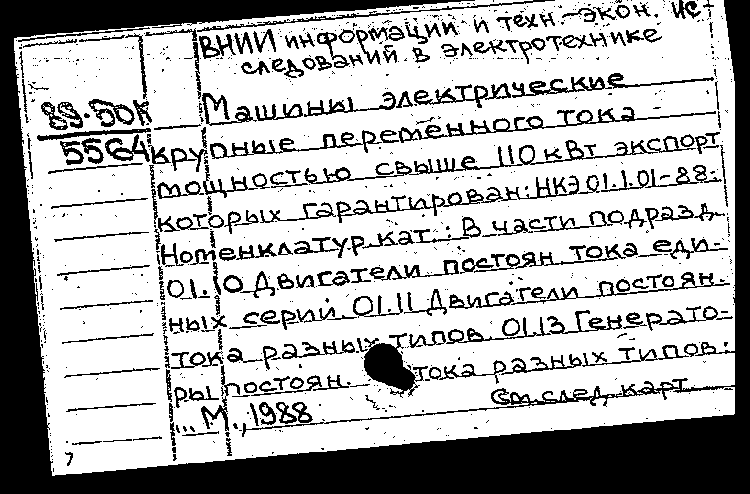 ВНИИ информации и техн.-экон. ис-
следований в электротехнике
89-50К
5564
Машины электрические
крупные переменного тока
мощностью свыше 110 кВт экспорт
которых гарантирован: НКЭ 01.1.01-88:
Номенклатур. кат.: В части подразд.
01.10 Двигатели постоян. тока еди-
ных серий 01.11 Двигатели постоян.
тока разных типов. 01.13 Генерато-
ры постоян. тока разных типов:
... М., 1988
См. след. карт.
7